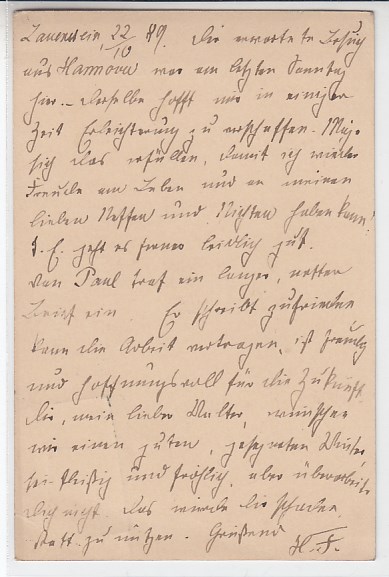 Lauenstein 22/10 89. Der erwartete Besuch
aus Hannover war am letzten Sonntag
hier. Derselbe hofft mir in einiger
Zeit Erleichterung zu verschaffen. Möge
sich das erfüllen, damit ich wieder
Freude am Leben und an meinen
lieben Neffen und Nichten haben kann!
T. E. geht es ferner leidlich gut.
Von Paul traf ein langer, netter
Brief ein. Er schreibt zufrieden
kann die Arbeit vertragen, ist freudig
und hoffnungsvoll für die Zukunft.
Dir, mein lieber Walter, wünschen
wir einen guten, gesegneten Winter,
sei fleißig und fröhlich, aber überarbeite
Dich nicht. Das würde Dir schaden,
statt zu nützen. Grüßend